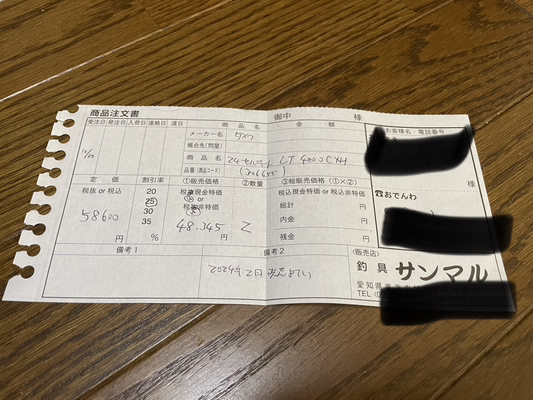 商品注文書
御中
様
受注日 発注日 入荷日 連絡日 渡日
商品名
金額
お客様名・電話番号
メーカー名 ダイワ
問合先(問屋)
商品名 24セルテート LT4000CXH
品番(商品コード) (306655)
様
定価 割引率 ①販売価格 ②数量 ③総販売価格(①×②)
☎おでんわ
税抜 or 税込 20 税込現金特価 税込現金特価 or 税抜非特価
25 or
58600 30 税抜非特価 総計 円
35 48.345 2 内金 円
円 % 円 残金 円
備考1 備考2
〈販売店〉
2024年2月
釣具 サンマル
愛知県
TEL